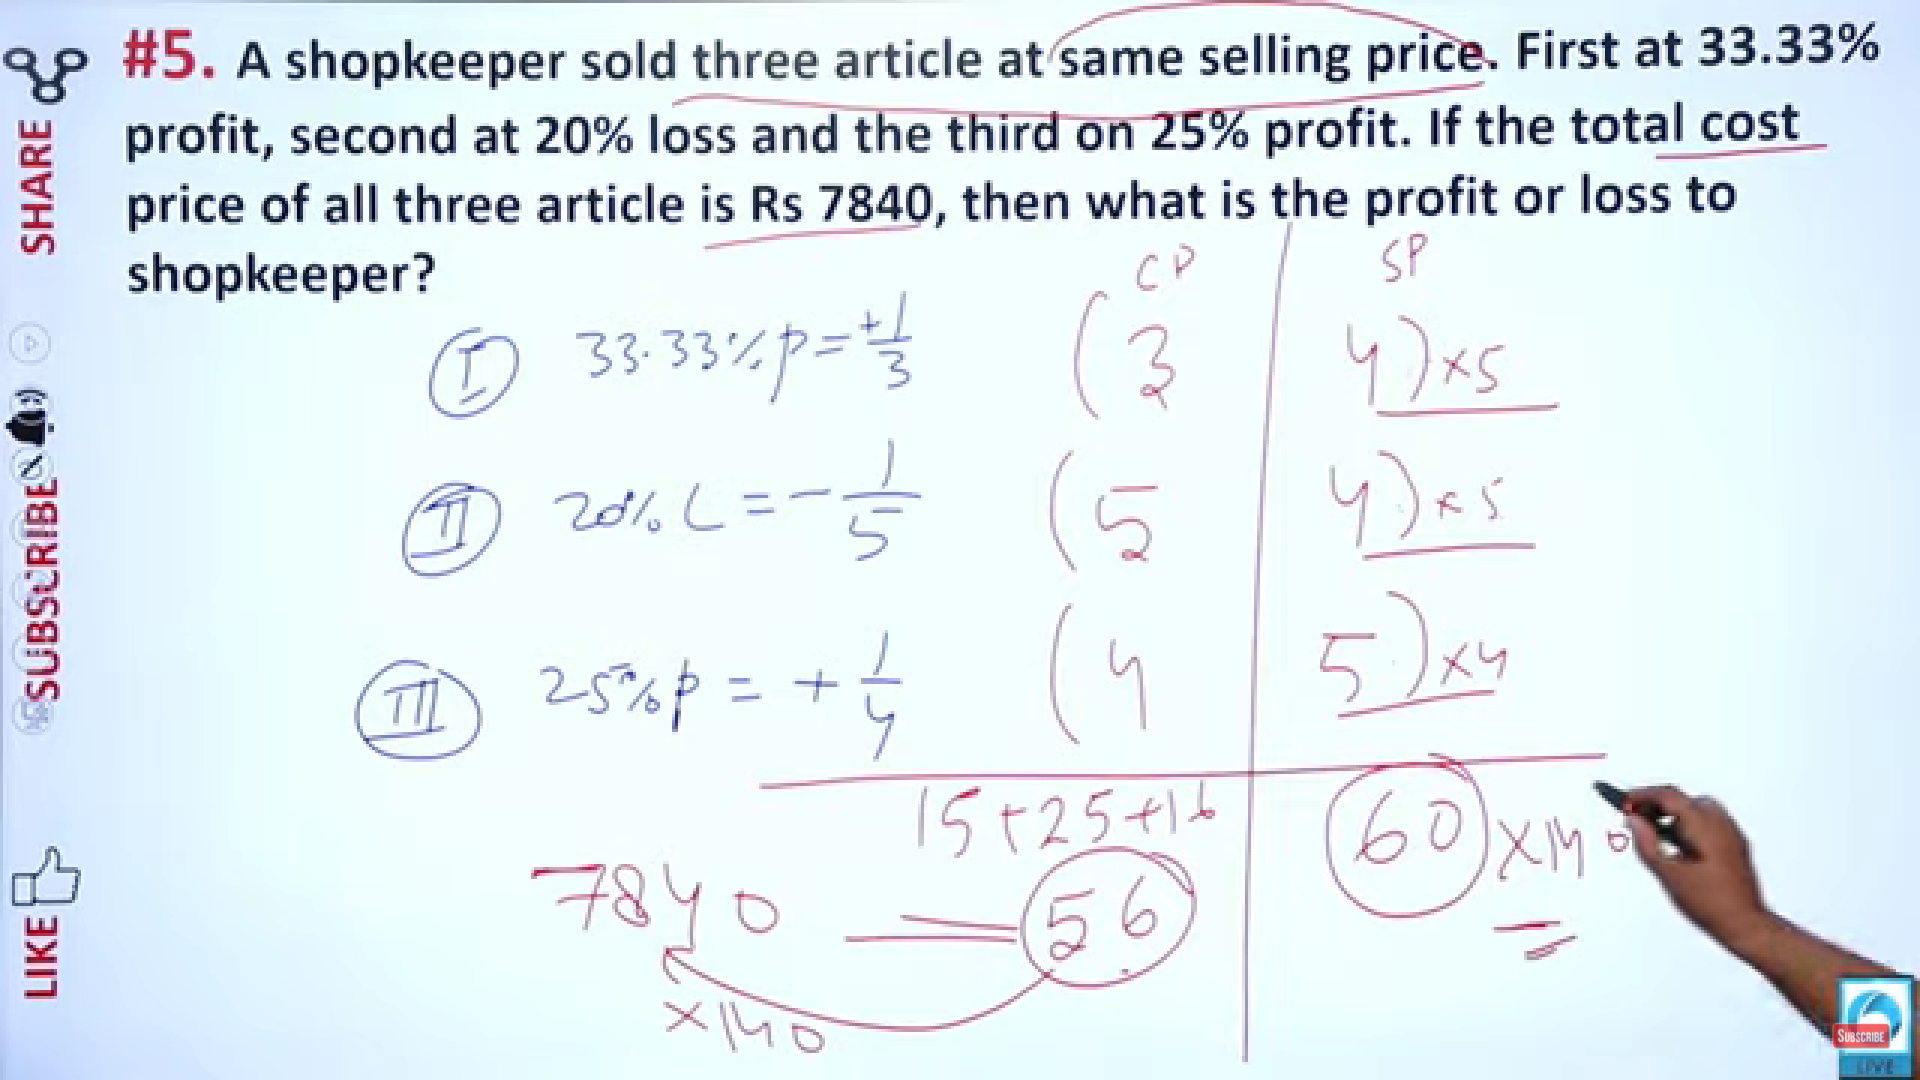 #5. A shopkeeper sold three article at same selling price. First at 33.33%
profit, second at 20% loss and the third on 25% profit. If the total cost
price of all three article is Rs 7840, then what is the profit or loss to
shopkeeper?
CP SP
I 33.33% p = +1/3 (3 4) ×5
II 20% L = -1/5 (5 4) ×5
III 25% p = +1/4 (4 5) ×4
15+25+16
60 ×140
7840 = 56
×140
SHARE
SUBSCRIBE
LIKE
SUBSCRIBE
LIVE